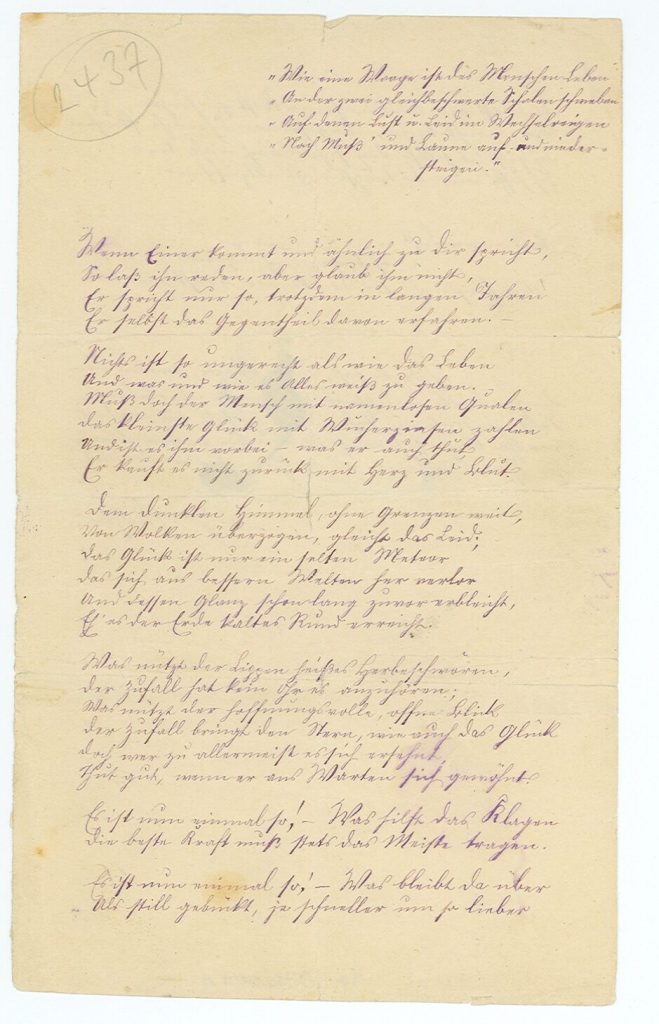 2437
"Wie eine Waage ist des Menschen Leben
"An der zwei gleichbeschwerte Schalen schweben
"Auf denen Lust u. Leid im Wechselreigen
"Nach Muß' und Laune auf- und nieder-
steigen."
Wenn Einer kommt und ähnlich zu dir spricht,
So laß ihn reden, aber glaub ihm nicht,
Er spricht nur so, trotzdem in langen Jahren
Er selbst das Gegentheil davon erfahren. –
Nichts ist so ungerecht als wie das Leben
Und was und wie es Alles weiß zu geben.
Muß doch der Mensch mit namenlosen Qualen
das kleinste Glück mit Wucherzinsen zahlen
Und ist es ihm vorbei – was er auch thut
Er kauft es nicht zurück mit Herz und Blut.
Dem dunklen Himmel, ohne Grenzen weit,
Von Wolken überzogen, gleicht das Leid;
das Glück ist nur ein selten Meteor
das sich aus bessern Welten her verlor
Und dessen Glanz schon lang zuvor erbleicht,
Eh' es der Erde kaltes Rund erreicht.
Was nützt der Lippen heißes Herbeschwören,
der Zufall hat kein Ohr es anzuhören;
Was nützt der hoffnungsvolle, offne Blick
der Zufall bringt den Stern, wie auch das Glück
doch wer zu allermeist es sich ersehnt,
thut gut, wenn er ans Warten sich gewöhnt.
Es ist nun einmal so! – Was hilft das Klagen
die beste Kraft muß stets das Meiste tragen.
Es ist nun einmal so! – Was bleibt da über
Als still gebückt, je schneller um so lieber